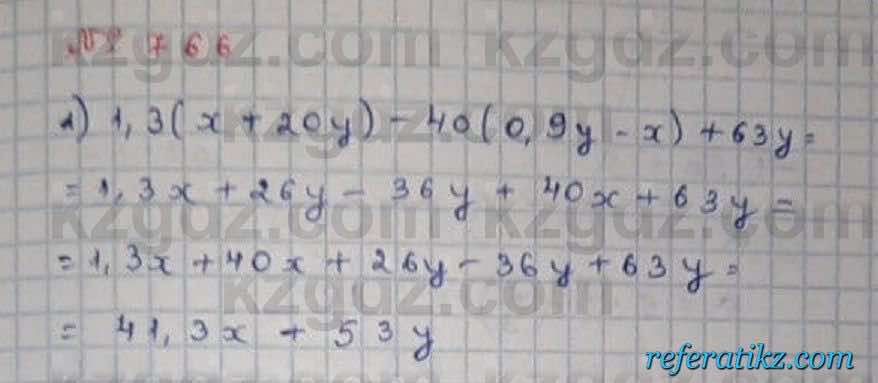 № 766
kzgdz.com
1) 1,3(x + 20y) - 40(0,9y - x) + 63y =
= 1,3x + 26y - 36y + 40x + 63y =
kzgdz.com
= 1,3x + 40x + 26y - 36y + 63y =
kzgdz.com
= 41,3x + 53y
referatikz.com